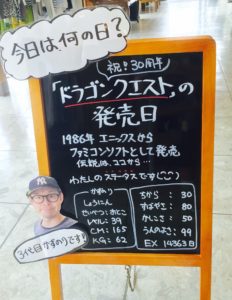 今日は何の日？
祝！30周年
「ドラゴンクエスト」の
発売日
1986年 エニックスから
ファミコンソフトとして発売
伝説は、ココから…
わたしのステータスです(ここ)
かずのり
しょうにん
せいべつ：おとこ
レベル：39
CM：165
KG：62
ちから：30
すばやさ：80
かしこさ：50
うんのよさ：99
EX 14363日
3代目かずのりです！
NY